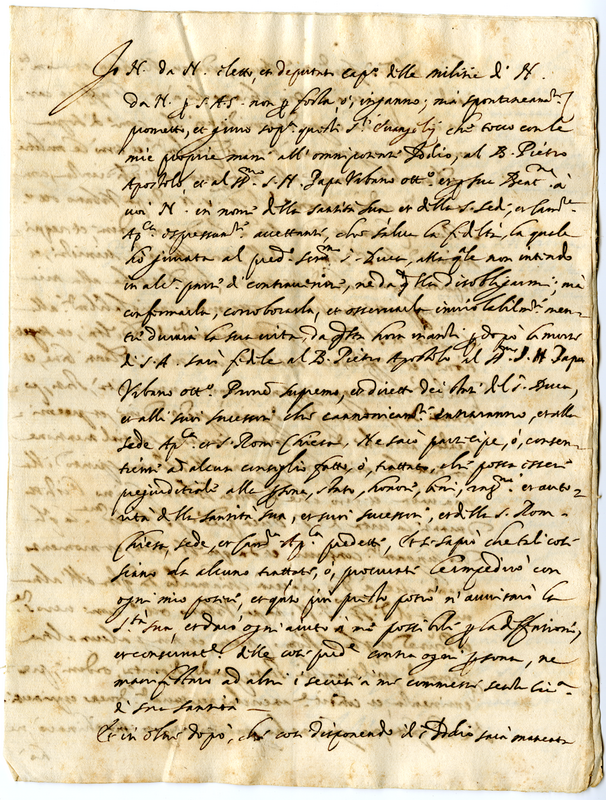 Io N. da N. eletto, et deputato cap.º delle militie di N.
da N. p S. A. S. non p forza ò, inganno; mà spontaneam.te
prometto, et giuro sop.ª questi S.ti Euangelij che tocco con le
mie proprie mani all'omnipotente Iddio, al B. Pietro
Apostolo, et al S.mo S. N. Papa Urbano ott.º et p sua Beat.ne à
uoi N. in nome della santità sua et della S. Sede, et Cam.ra
Ap.ca espressam.te accettante, che salua la fedeltà, la quale
hò giurata al pred.º Ser.mo S. Duca, alla q.le non intendo
in alc.ª parte di contrauenire, ne da q.lla disobligarmi; mà
confermarla, corroborarla, et osseruarla inuiolabilm.te men-
tre durarà la sua uita, da q.sta hora inanti p dopò la morte
di S. A. sarò fedele al B. Pietro Apostolo al S.mo S. N. Papa
Urbano ott.º Prone supremo, et diretto dei Stati del S. Duca,
et alli suoi successori che cannonicam.te entraranno, et alla
sede Ap.ca et S. Rom. Chiesa, Ne sarò partecipe, ò, consen-
tiente ad alcun consiglio, fatto, ò, trattato, che possa esser
pregiuditiale alle p.sone, stato, honore, beni, et auto-
rità della santità sua, et suoi successori, et della S. Rom.
Chiesa, sede, et Cam.ra Ap.ca predette, Et se saprò che tali cose
siano da alcuno trattate, ò, procurate le impedirò con
ogni mio potere, et quanto più presto potrò n'auuisarò la
S.tà sua, et darò ogni aiuto à me possibile p la diffensione,
et conseruat.ne delle cose pred.e contra ogni p.sona, ne
manifestarò ad altri i secreti à me commessi senza lic.ª
di sua santità —
Et in oltre dopò, che così disponendo il S. Iddio sarà mancata